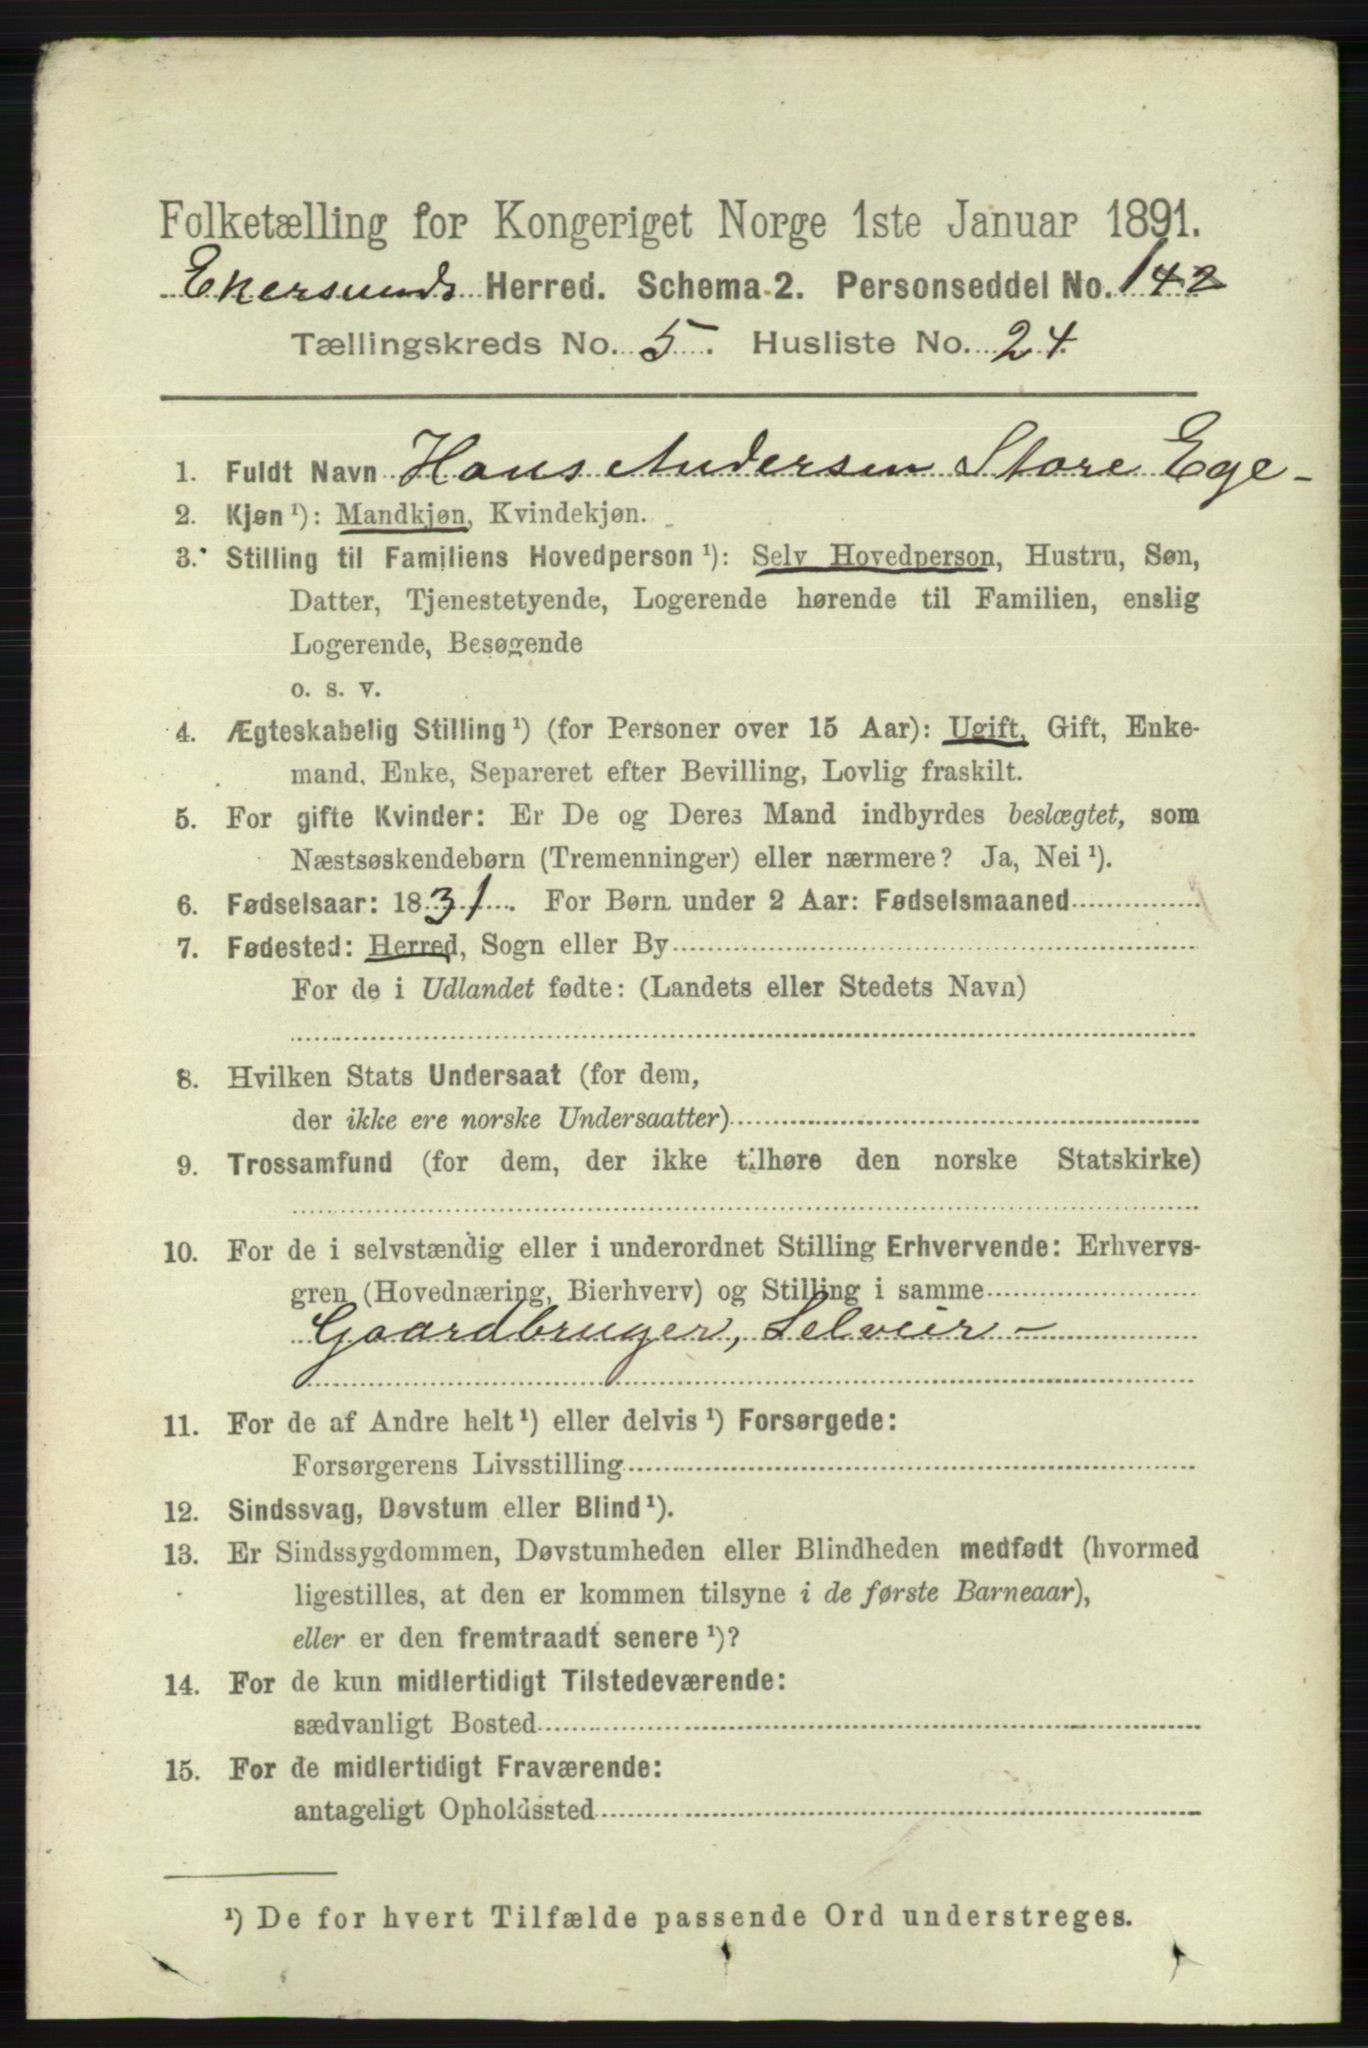 Folketælling for Kongeriget Norge 1ste Januar 1891.
Ekersunds Herred. Schema 2. Personseddel No. 142
Tællingskreds No. 5. Husliste No. 24.
1. Fuldt Navn Hans Andersen Store Ege-
2. Kjøn ¹): Mandkjøn, Kvindekjøn.
3. Stilling til Familiens Hovedperson ¹): Selv Hovedperson, Hustru, Søn,
Datter, Tjenestetyende, Logerende hørende til Familien, enslig
Logerende, Besøgende
o. s. v.
4. Ægteskabelig Stilling ¹) (for Personer over 15 Aar): Ugift, Gift, Enke-
mand, Enke, Separeret efter Bevilling, Lovlig fraskilt.
5. For gifte Kvinder: Er De og Deres Mand indbyrdes beslægtet, som
Næstsøskendebørn (Tremenninger) eller nærmere? Ja, Nei ¹).
6. Fødselsaar: 1831. For Børn under 2 Aar: Fødselsmaaned
7. Fødested: Herred, Sogn eller By
For de i Udlandet fødte: (Landets eller Stedets Navn)
8. Hvilken Stats Undersaat (for dem,
der ikke ere norske Undersaatter)
9. Trossamfund (for dem, der ikke tilhøre den norske Statskirke)
10. For de i selvstændig eller i underordnet Stilling Erhvervende: Erhvervs-
gren (Hovednæring, Bierhverv) og Stilling i samme
Gaardbruger, Selveier -
11. For de af Andre helt ¹) eller delvis ¹) Forsørgede:
Forsørgerens Livsstilling
12. Sindssvag, Døvstum eller Blind ¹).
13. Er Sindssygdommen, Døvstumheden eller Blindheden medfødt (hvormed
ligestilles, at den er kommen tilsyne i de første Barneaar),
eller er den fremtraadt senere ¹)?
14. For de kun midlertidigt Tilstedeværende:
sædvanligt Bosted
15. For de midlertidigt Fraværende:
antageligt Opholdssted
¹) De for hvert Tilfælde passende Ord understreges.